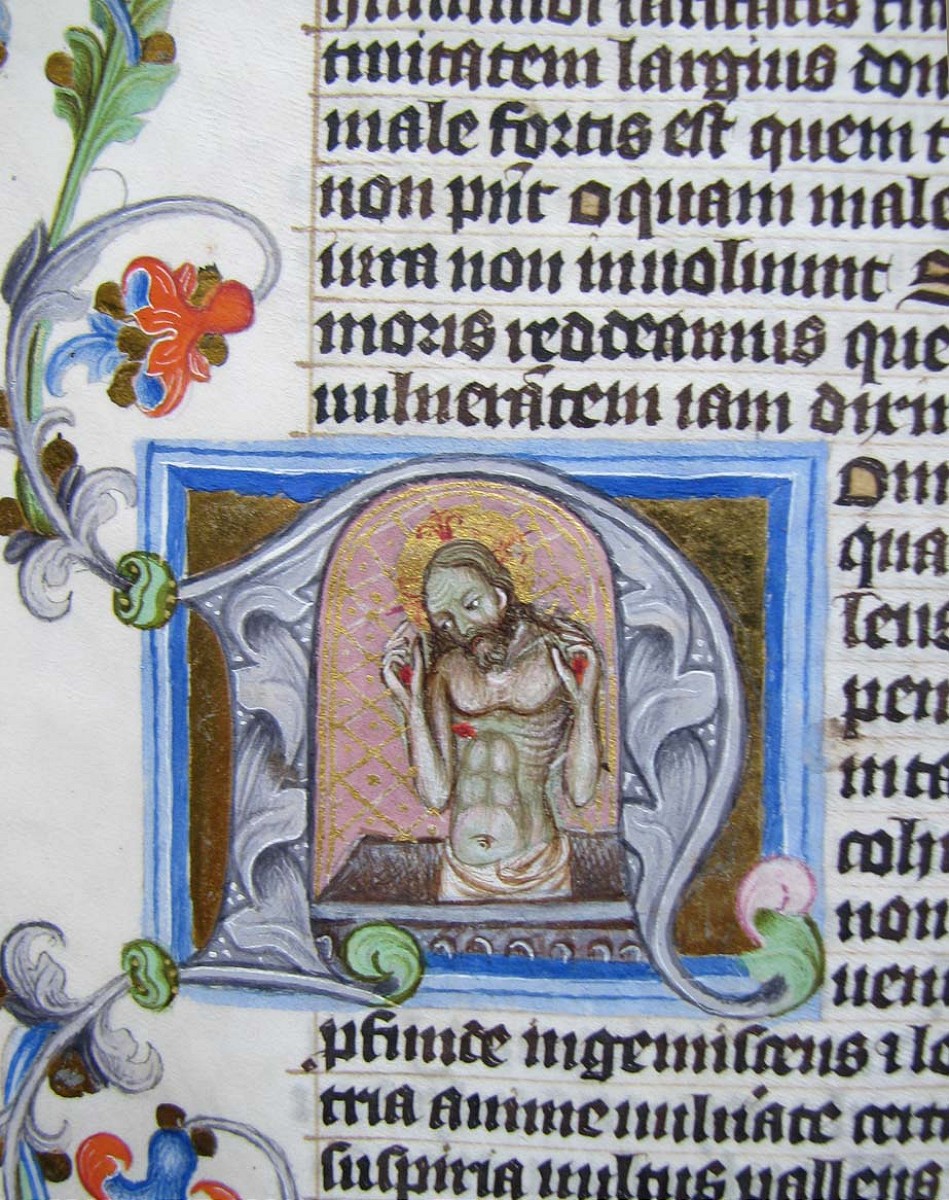 tiuitatem largius don
male fortis est quem
non pn̄t O quam male
iura non inuoluunt S
moris reddeamus que
uulnerātem iam dixi
N
Om
qua
leus
pen
inta
colu
non
uen
pfunde ingemiscens ⁊ lo
tria anime uulnāte cert
suspiria uultus uallens